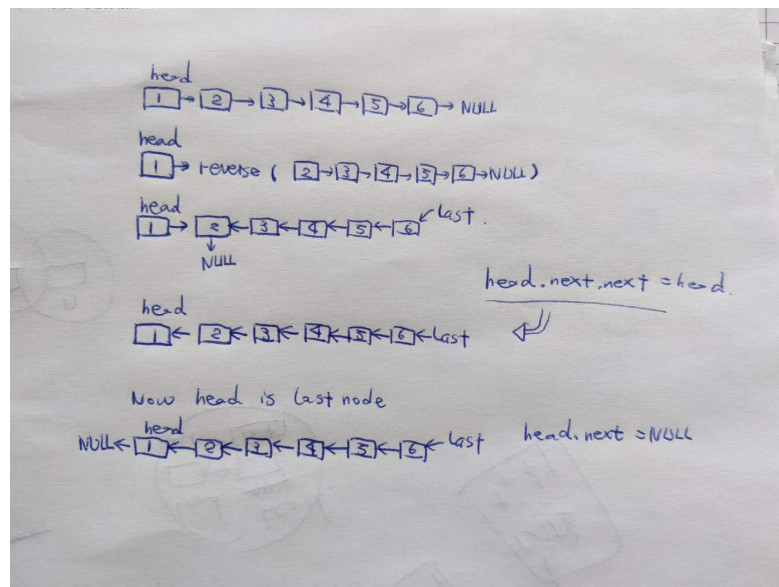 head
1 → 2 → 3 → 4 → 5 → 6 → NULL
head
1 → reverse ( 2 → 3 → 4 → 5 → 6 → NULL )
head
1 → 2 ← 3 ← 4 ← 5 ← 6 ← last.
↓
NULL
head.next.next = head.
head
1 ← 2 ← 3 ← 4 ← 5 ← 6 ← last
Now head is last node
head
NULL ← 1 ← 2 ← 3 ← 4 ← 5 ← 6 ← last head.next = NULL